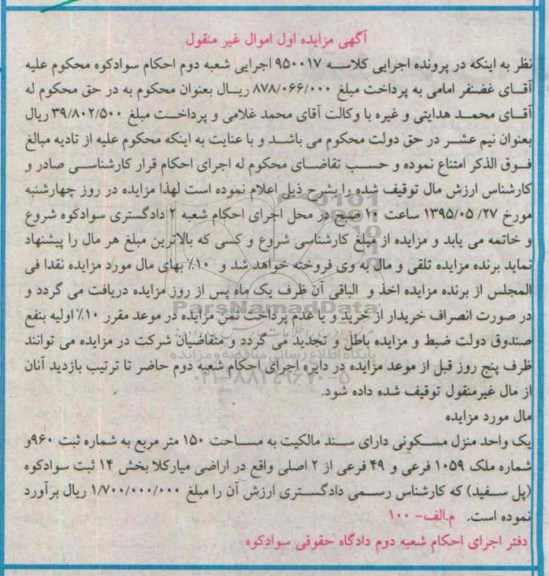 آگهی مزایده اول اموال غیر منقول
نظر به اینکه در پرونده اجرایی کلاسه ۹۵۰۰۱۷ اجرایی شعبه دوم احکام سوادکوه محکوم علیه
آقای غضنفر امامی به پرداخت مبلغ ۸۷۸/۰۶۶/۰۰۰ ریال بعنوان محکوم به در حق محکوم له
آقای محمد هدایتی و غیره با وکالت آقای محمد غلامی و پرداخت مبلغ ۳۹/۸۰۲/۵۰۰ ریال
بعنوان نیم عشر در حق دولت محکوم می باشد و با عنایت به اینکه محکوم علیه از تادیه مبالغ
فوق الذکر امتناع نموده و حسب تقاضای محکوم له اجرای احکام قرار کارشناسی صادر و
کارشناس ارزش مال توقیف شده را بشرح ذیل اعلام نموده است لهذا مزایده در روز چهارشنبه
مورخ ۲۷/ ۱۳۹۵/۰۵ ساعت ۱۰ صبح در محل اجرای احکام شعبه ۲ دادگستری سوادکوه شروع
و خاتمه می یابد و مزایده از مبلغ کارشناسی شروع و کسی که بالاترین مبلغ هر مال را پیشنهاد
نماید برنده مزایده تلقی و مال به وی فروخته خواهد شد و ۱۰٪ بهای مال مورد مزایده نقدا فی
المجلس از برنده مزایده اخذ و الباقی آن ظرف یک ماه پس از روز مزایده دریافت می گردد و
در صورت انصراف خریدار از خرید و یا عدم پرداخت ثمن مزایده در موعد مقرر ۱۰٪ اولیه بنفع
صندوق دولت ضبط و مزایده باطل و تجدید می گردد و متقاضیان شرکت در مزایده می توانند
ظرف پنج روز قبل از موعد مزایده در دایره اجرای احکام شعبه دوم حاضر تا ترتیب بازدید آنان
از مال غیرمنقول توقیف شده داده شود.
مال مورد مزایده
یک واحد منزل مسکونی دارای سند مالکیت به مساحت ۱۵۰ متر مربع به شماره ثبت ۹۶۰و
شماره ملک ۱۰۵۹ فرعی و ۴۹ فرعی از ۲ اصلی واقع در اراضی میارکلا بخش ۱۴ ثبت سوادکوه
(پل سفید) که کارشناس رسمی دادگستری ارزش آن را مبلغ ۱/۷۰۰/۰۰۰/۰۰۰ ریال برآورد
نموده است. م.الف- ۱۰۰
دفتر اجرای احکام شعبه دوم دادگاه حقوقی سوادکوه
ParsNamadData
پایگاه اطلاع رسانی مناقصه و مزایده
۰۲۱-۸۸۳۴۹۶۷۰-۵